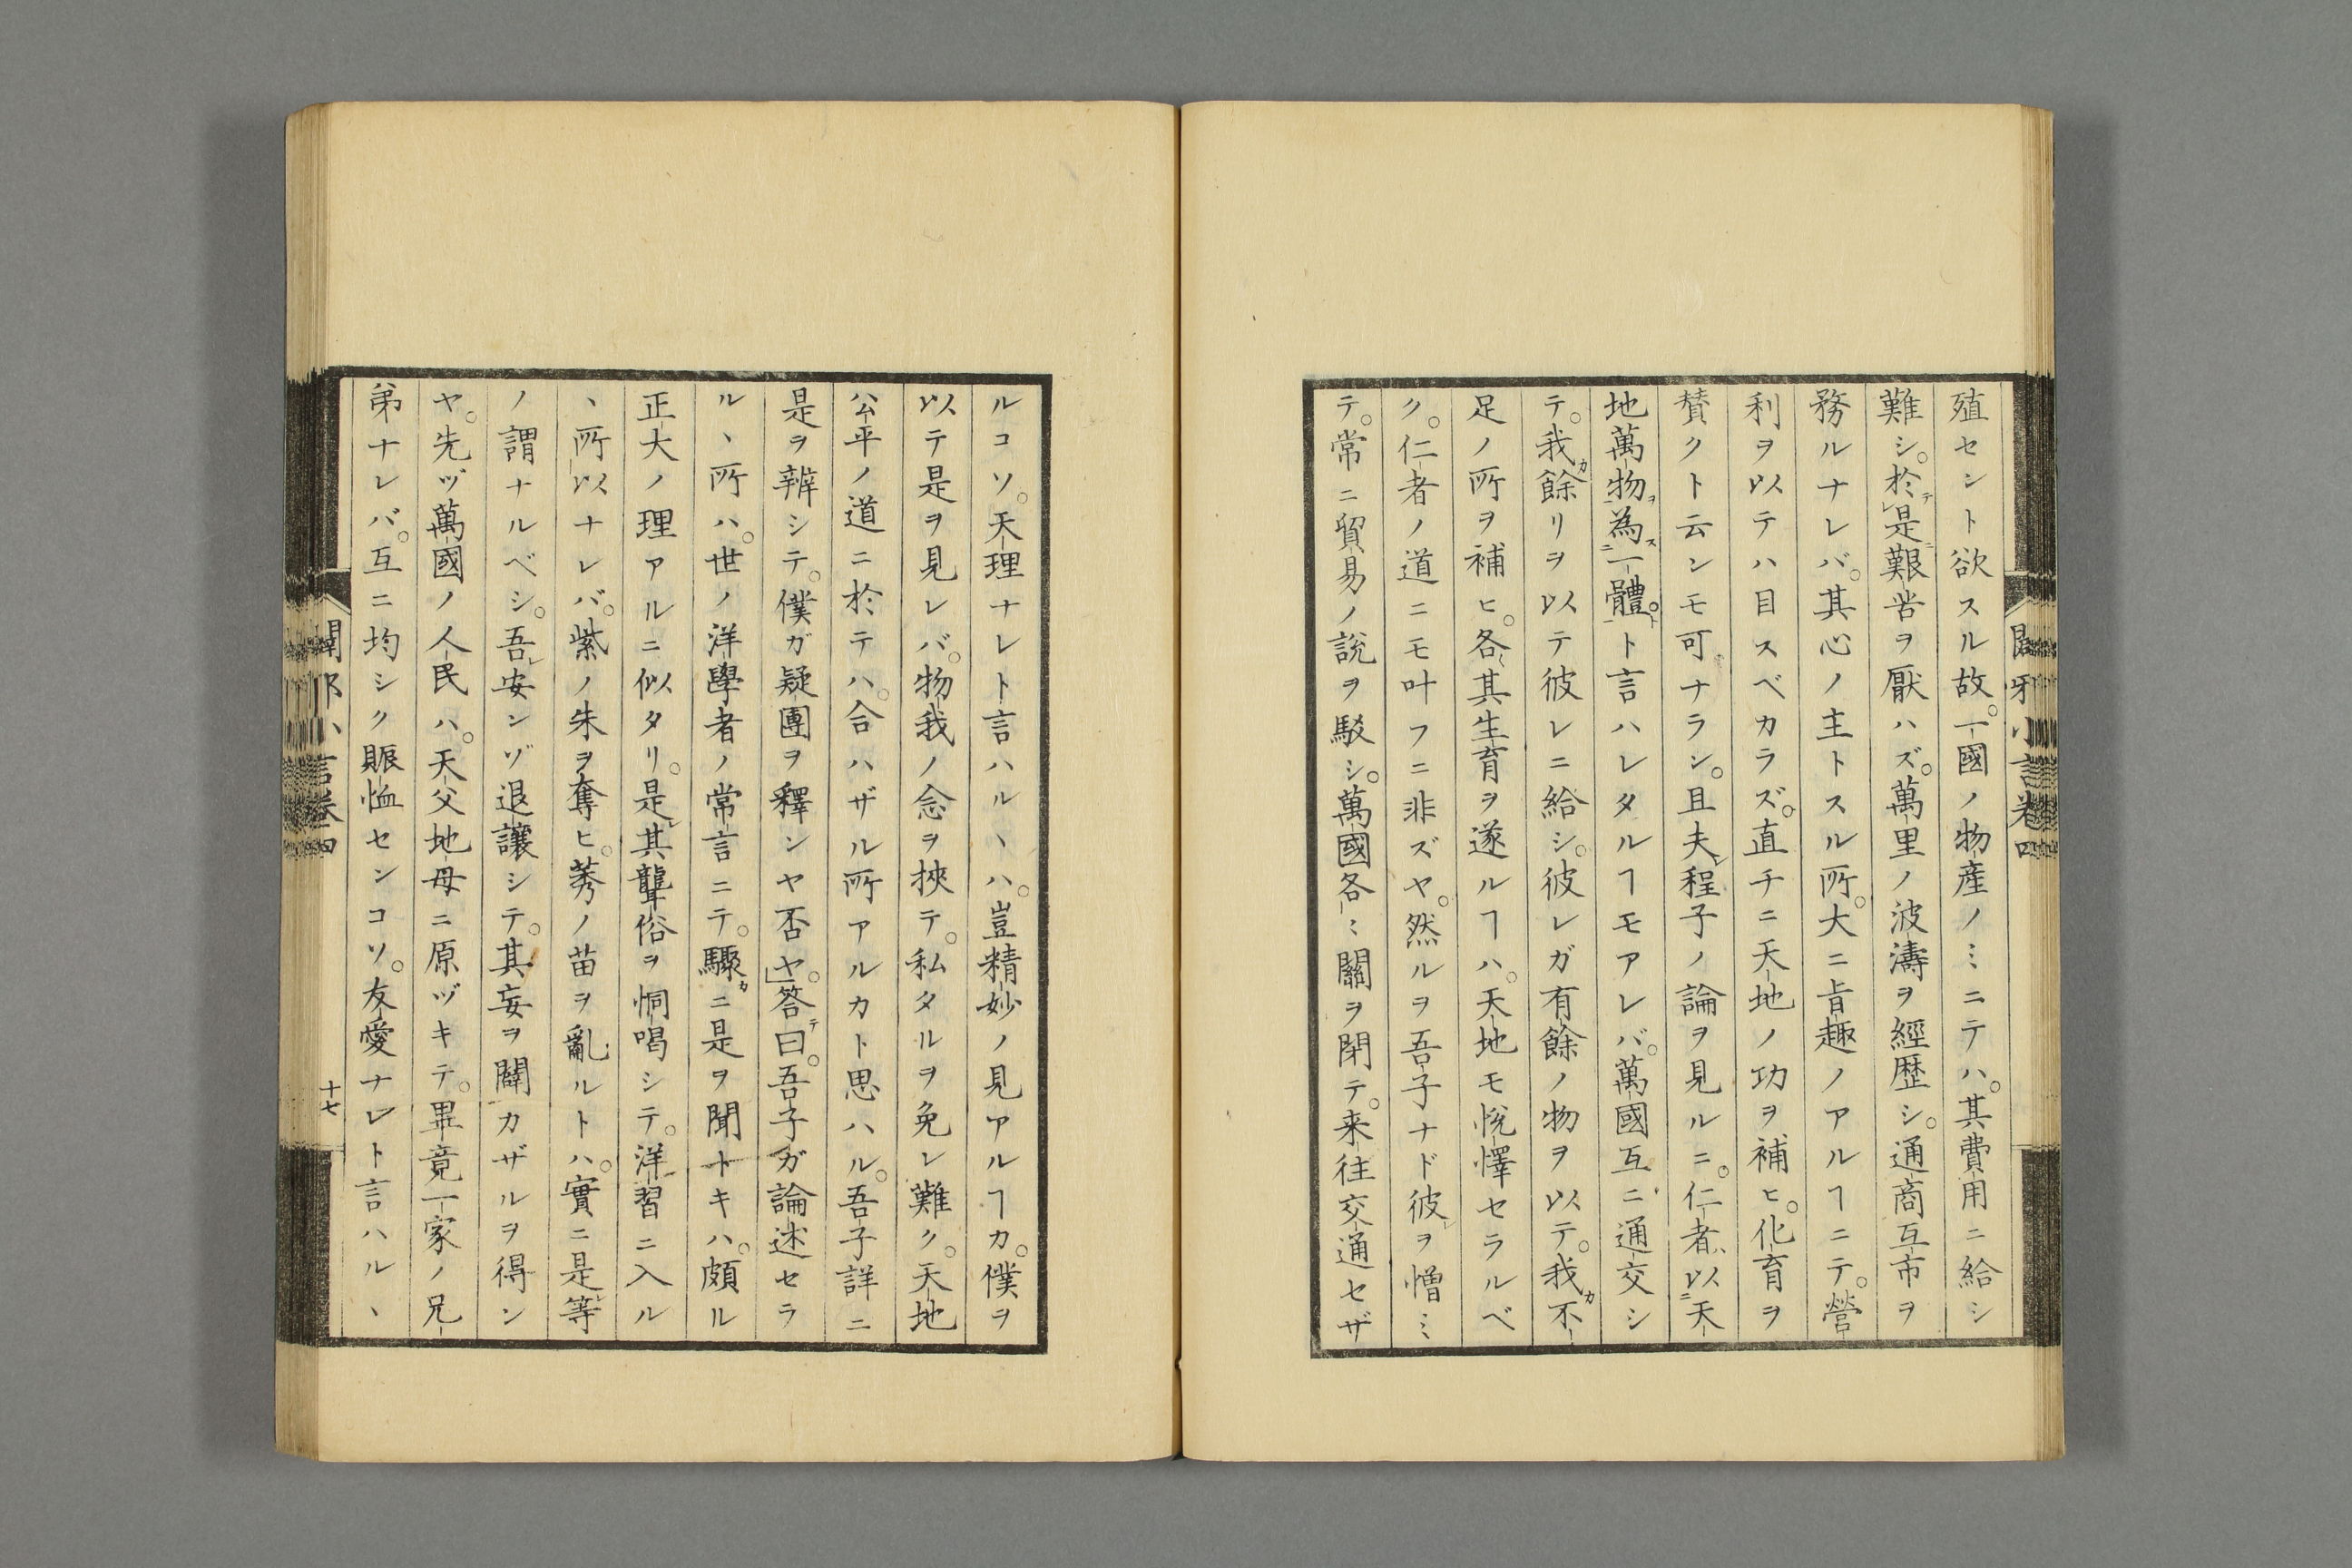 殖セント欲スル故。一國ノ物産ノミニテハ。其費用ニ給シ
難シ。於テ是ニ艱苦ヲ厭ハズ。萬里ノ波濤ヲ經歷シ。通商互市ヲ
務ルナレバ。其心ノ主トスル所。大ニ旨趣ノアルヿニテ。營
利ヲ以テハ目スベカラズ。直チニ天地ノ功ヲ補ヒ。化育ヲ
賛クト云ンモ可ナラン。且夫レ程子ノ論ヲ見ルニ。仁者ハ以ニ天
地萬物ヲ為スニ一體。ト言ハレタルヿモアレバ。萬國互ニ通交シ
テ。我カ餘リヲ以テ彼レニ給シ。彼レガ有餘ノ物ヲ以テ。我カ不
足ノ所ヲ補ヒ。各〻其生育ヲ遂ルヿハ。天地モ悅懌セラルベ
ク。仁者ノ道ニモ叶フニ非ズヤ。然ルヲ吾子ナド彼レヲ憎ミ
テ。常ニ貿易ノ說ヲ駁シ。萬國各〻關ヲ閉テ。来往交通セザ
ルコソ。天理ナレト言ハルヽハ。豈精妙ノ見アルヿカ。僕ヲ
以テ是ヲ見レバ。物我ノ念ヲ挾テ。私タルヲ免レ難ク。天地
公平ノ道ニ於テハ。合ハザル所アルカト思ハル。吾子詳ニ
是ヲ辨シテ。僕ガ疑團ヲ釋ンヤ否ヤ。」答テ曰。吾子ガ論述セラ
ルヽ所ハ。世ノ洋學者ノ常言ニテ。驟カニ是ヲ聞トキハ。頗ル
正大ノ理アルニ似タリ。是レ其聾俗ヲ恫喝シテ。洋習ニ入ル
ヽ所以ナレバ。紫ノ朱ヲ奪ヒ。莠ノ苗ヲ亂ルトハ。實ニ是レ等
ノ謂ナルベシ。吾レ安ンゾ退讓シテ。其妄ヲ闢カザルヲ得ン
ヤ。先ヅ萬國ノ人民ハ。天父地母ニ原ヅキテ。畢竟一家ノ兄
弟ナレバ。互ニ均シク賑恤センコソ。友愛ナレト言ハルヽ
闢邪小言卷四
十七